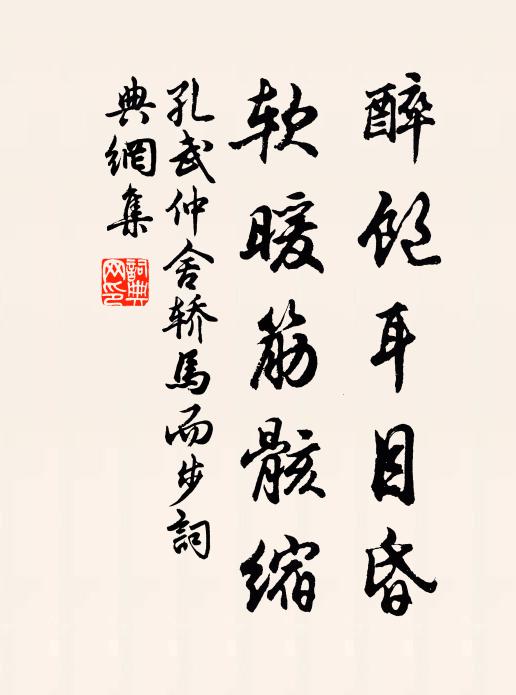 醉飽耳目昏
軟暖筋骸縮
孔武仲舍轿馬而步詞
典網集
詞典
网印